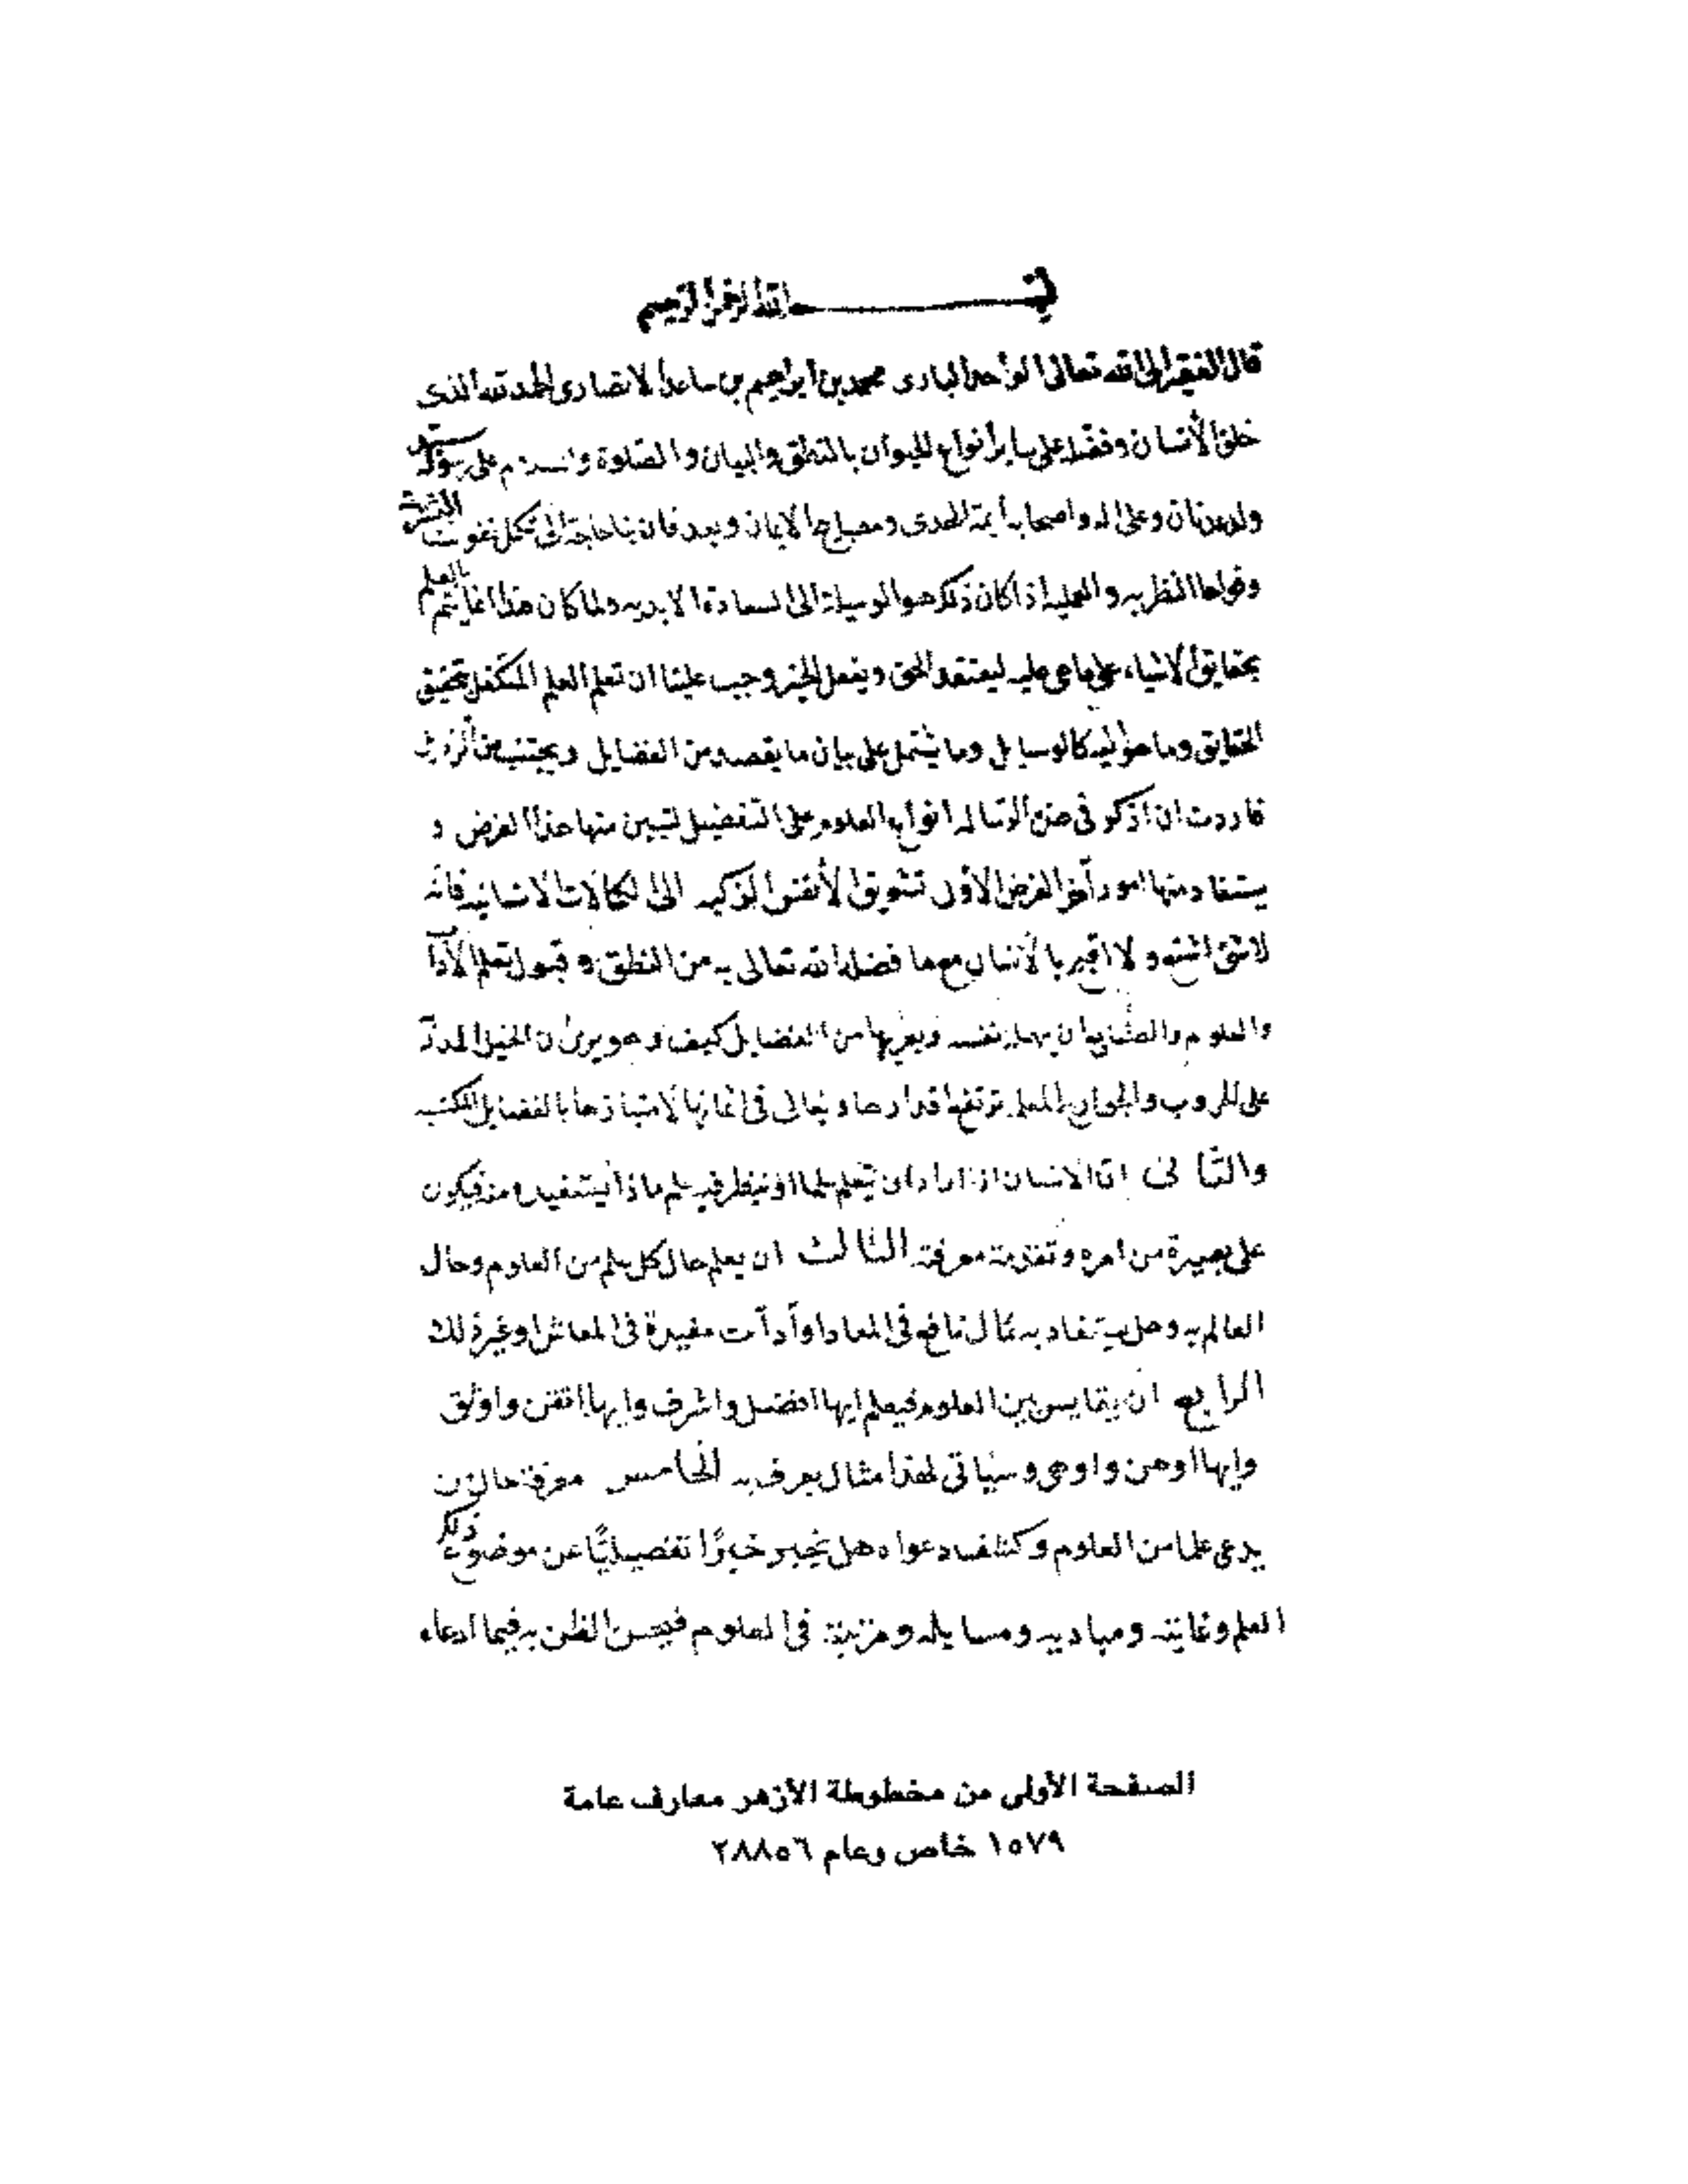 بسم الله الرحمن الرحيم
قال الفقير الى الله تعالى الواحد البارى محمد بن ابراهيم بن ساعد الانصارى الحمد لله الذى
خلق الأنسان وفضله على ساير أنواع الحيوان بالنطق والبيان والصلوة والسلام على سيد
ولد عدنان وعلى اله واصحابه أيمة الهدى ومصابيح الايمان وبعد فان بنا حاجة الى تكميل نفوسنا البشرية
وقواها النظريه والعمليه اذ كان ذلك هو الوسيلة الى السعادة الابديه ولما كان هذا انما يتم بالعلم
بحقايق الاشياء على ما هي عليه ليعتقد الحق ويفعل الخير وجب علينا ان نعلم العلم المتكفل بتحقيق
الحقايق وما هو اليه كالوسايل وما يشتمل على بيان ما يقصد من الفضايل ويجتنب من الرذايل
فاردت ان اذكر فى هذه الرسالة انواع العلوم على التفصيل لتبيين منها هذا الغرض و
يستفاد منها امور أخر الغرض الاول تشويق الأنفس الزكيه الى الكمالات الانسانيه فانه
لا شئ اشنع ولا اقبح بالأنسان مع ما فضله الله تعالى به من النطق وقبول تعلم الآداب
والعلوم والصنايع ان يهمل نفسه ويعريها من الفضايل كيف وهو يرى ان الخيل المدربة
على الحروب والجوارح المعلمة ترتفع اقدارها ويغالى فى اثمانها لامتيازها بالفضايل المكتسبه
والثانى انّ الانسان اذا اراد ان يتعلم علما او ينظر فيه علم ماذا يستفيده منه فيكون
على بصيرة من امره وتقدمة معرفة الثالث ان يعلم حال كل علم من العلوم وحال
العالم به وهل يستفاد به كمال نافع فى المعاد او أدآت مفيدة فى المعاش او غير ذلك
الرابع ان يقايس بين العلوم فيعلم ايها افضل واشرف وايها اتقن واوثق
وايها اوهن واوهى وسيأتى لهذا مثال يعرف به الخامس معرفة حال من
يدعى علما من العلوم وكشف دعواه هل يخبر خبرًا تفصيليًا عن موضوع ذلك
العلم وغايته ومباديه ومسايله ومرتبته فى العلوم فيحسن الظن به فيما ادعاه
الصفحة الأولى من مخطوطة الأزهر معارف عامة
١٥٧٩ خاص وعام ٢٨٨٥٦